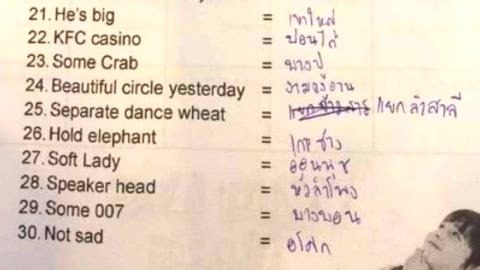 21. He's big = เขาใหญ่
22. KFC casino = บ่อนไก่
23. Some Crab = บางปู
24. Beautiful circle yesterday = งามวงวาน
25. Separate dance wheat = แยกลำสาลี
26. Hold elephant = เกาะช้าง
27. Soft Lady = อ่อนนุช
28. Speaker head = หัวลำโพง
29. Some 007 = บางบอน
30. Not sad = อโศก